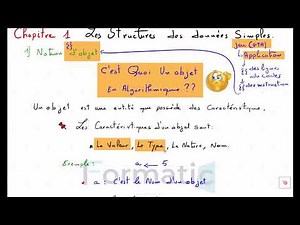 Chapitre 1 Les Structures des données Simples.
1) Notion d'objet
jeu (GTA)
Application
des lignes
de codes
C'est Quoi Un objet
En Algorithmique ??
Un objet est une entité que possède des Caractéristique.
Les Caractéristiques d'un objet sont:
La Valeur, Le Type, La Nature, Nom.
Exemple: a ← 5
a : C'est le Nom d'un objet
Formatic